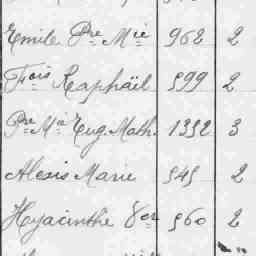 Emile Pre Mie 968 2
Fois Raphaël 599 2
Pre Ma Eug. Math. 1332 3
Alexis Marie 545 2
Hyacinthe Vor 560 2